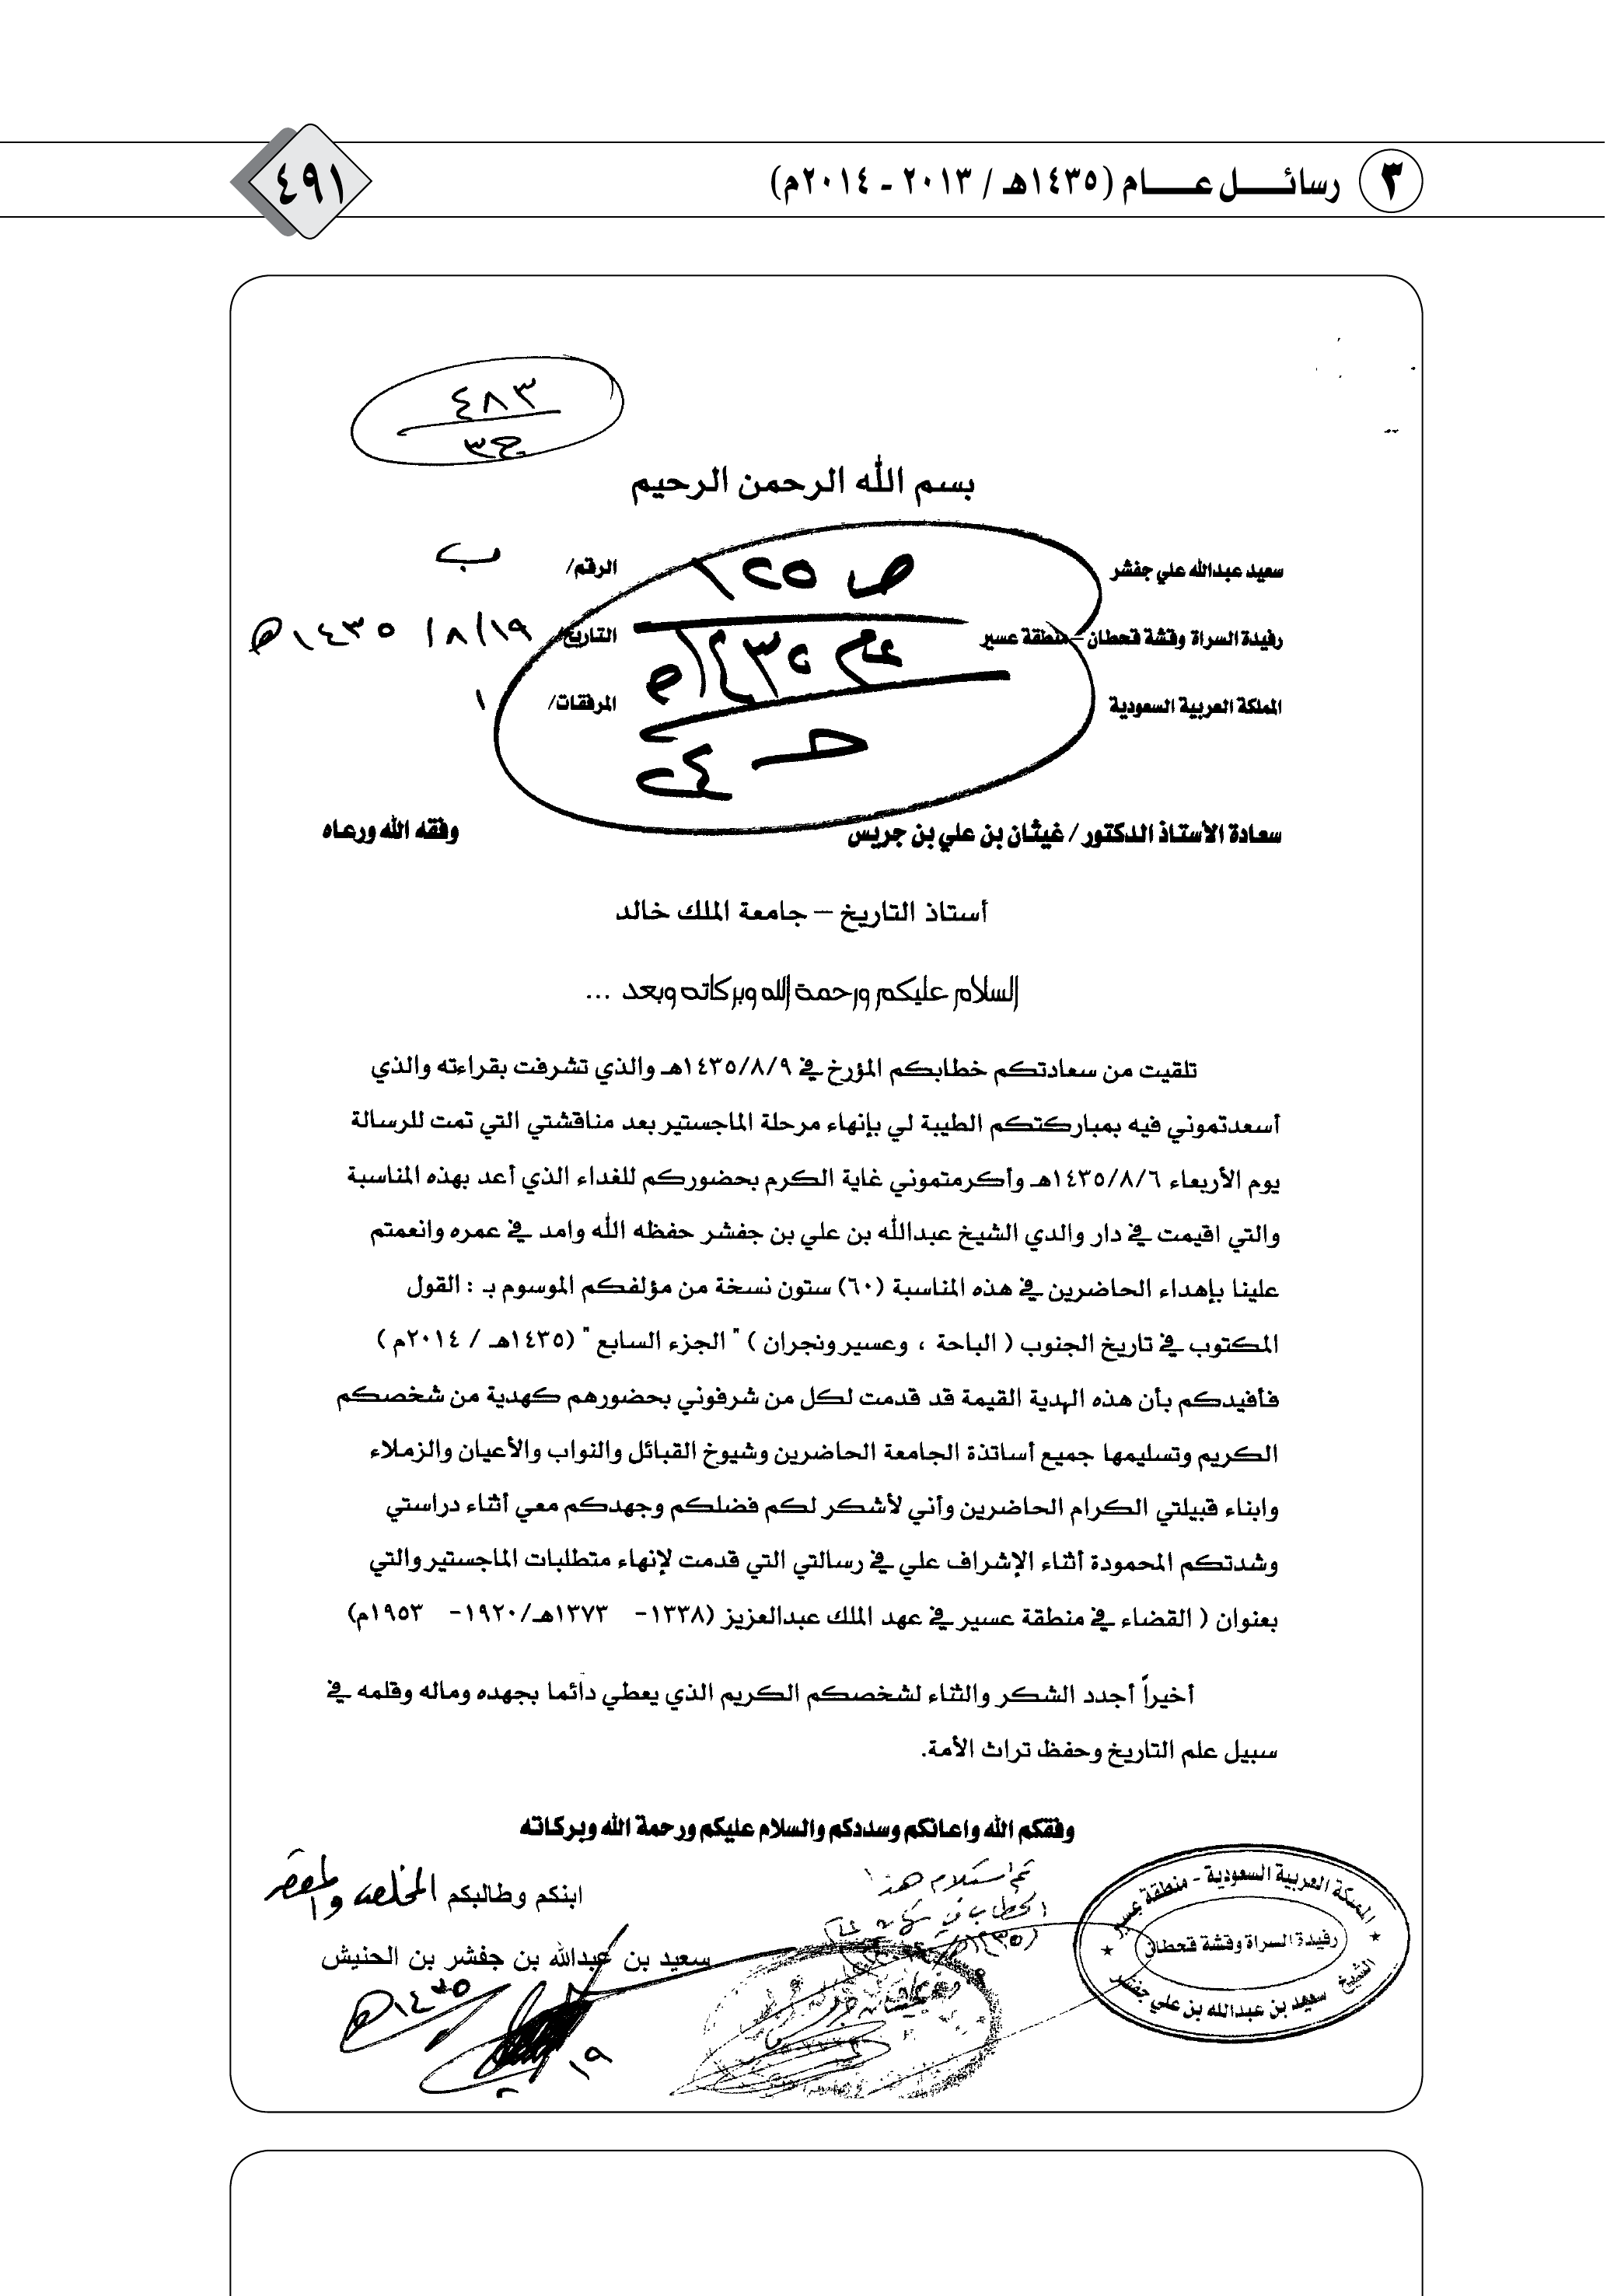 ٣ رسائـــــل عـــــام (١٤٣٥هـ / ٢٠١٣ - ٢٠١٤م)
٤٩١
٤٨٣
ج٣
بسم الله الرحمن الرحيم
سعيد عبدالله علي جفشر
الرقم/ ب
ص ١٢٥
رفيدة السراة وقشة قحطان – منطقة عسير
التاريخ/ ١٩/ ٨/ ١٤٣٥هـ
عام ١٤٣٥هـ
المملكة العربية السعودية
المرفقات/ ١
حـ ٢٤
سعادة الأستاذ الدكتور / غيثان بن علي بن جريس وفقه الله ورعاه
أستاذ التاريخ – جامعة الملك خالد
السلام عليكم ورحمة الله وبركاته وبعد ...
تلقيت من سعادتكم خطابكم المؤرخ في ١٤٣٥/٨/٩هـ والذي تشرفت بقراءته والذي
أسعدتموني فيه بمباركتكم الطيبة لي بإنهاء مرحلة الماجستير بعد مناقشتي التي تمت للرسالة
يوم الأربعاء ١٤٣٥/٨/٦هـ وأكرمتموني غاية الكرم بحضوركم للغداء الذي أعد بهذه المناسبة
والتي اقيمت في دار والدي الشيخ عبدالله بن علي بن جفشر حفظه الله وامد في عمره وانعمتم
علينا بإهداء الحاضرين في هذه المناسبة (٦٠) ستون نسخة من مؤلفكم الموسوم بـ : القول
المكتوب في تاريخ الجنوب ( الباحة ، وعسير ونجران ) " الجزء السابع " (١٤٣٥هـ / ٢٠١٤م )
فأفيدكم بأن هذه الهدية القيمة قد قدمت لكل من شرفوني بحضورهم كهدية من شخصكم
الكريم وتسليمها جميع أساتذة الجامعة الحاضرين وشيوخ القبائل والنواب والأعيان والزملاء
وابناء قبيلتي الكرام الحاضرين وأني لأشكر لكم فضلكم وجهدكم معي أثناء دراستي
وشدتكم المحمودة أثناء الإشراف علي في رسالتي التي قدمت لإنهاء متطلبات الماجستير والتي
بعنوان ( القضاء في منطقة عسير في عهد الملك عبدالعزيز (١٣٣٨- ١٣٧٣هـ/١٩٢٠- ١٩٥٣م)
أخيراً أجدد الشكر والثناء لشخصكم الكريم الذي يعطي دائما بجهده وماله وقلمه في
سبيل علم التاريخ وحفظ تراث الأمة.
وفقكم الله واعانكم وسددكم والسلام عليكم ورحمة الله وبركاته
ابنكم وطالبكم المخلص والمقصر
سعيد بن عبدالله بن جفشر بن الحنيش
١٩
١٤٣٥هـ
تم استلام هذا
الخطاب في
المملكة العربية السعودية - منطقة عسير
رفيدة السراة وقشة قحطان
الشيخ سعيد بن عبدالله بن علي جفشر